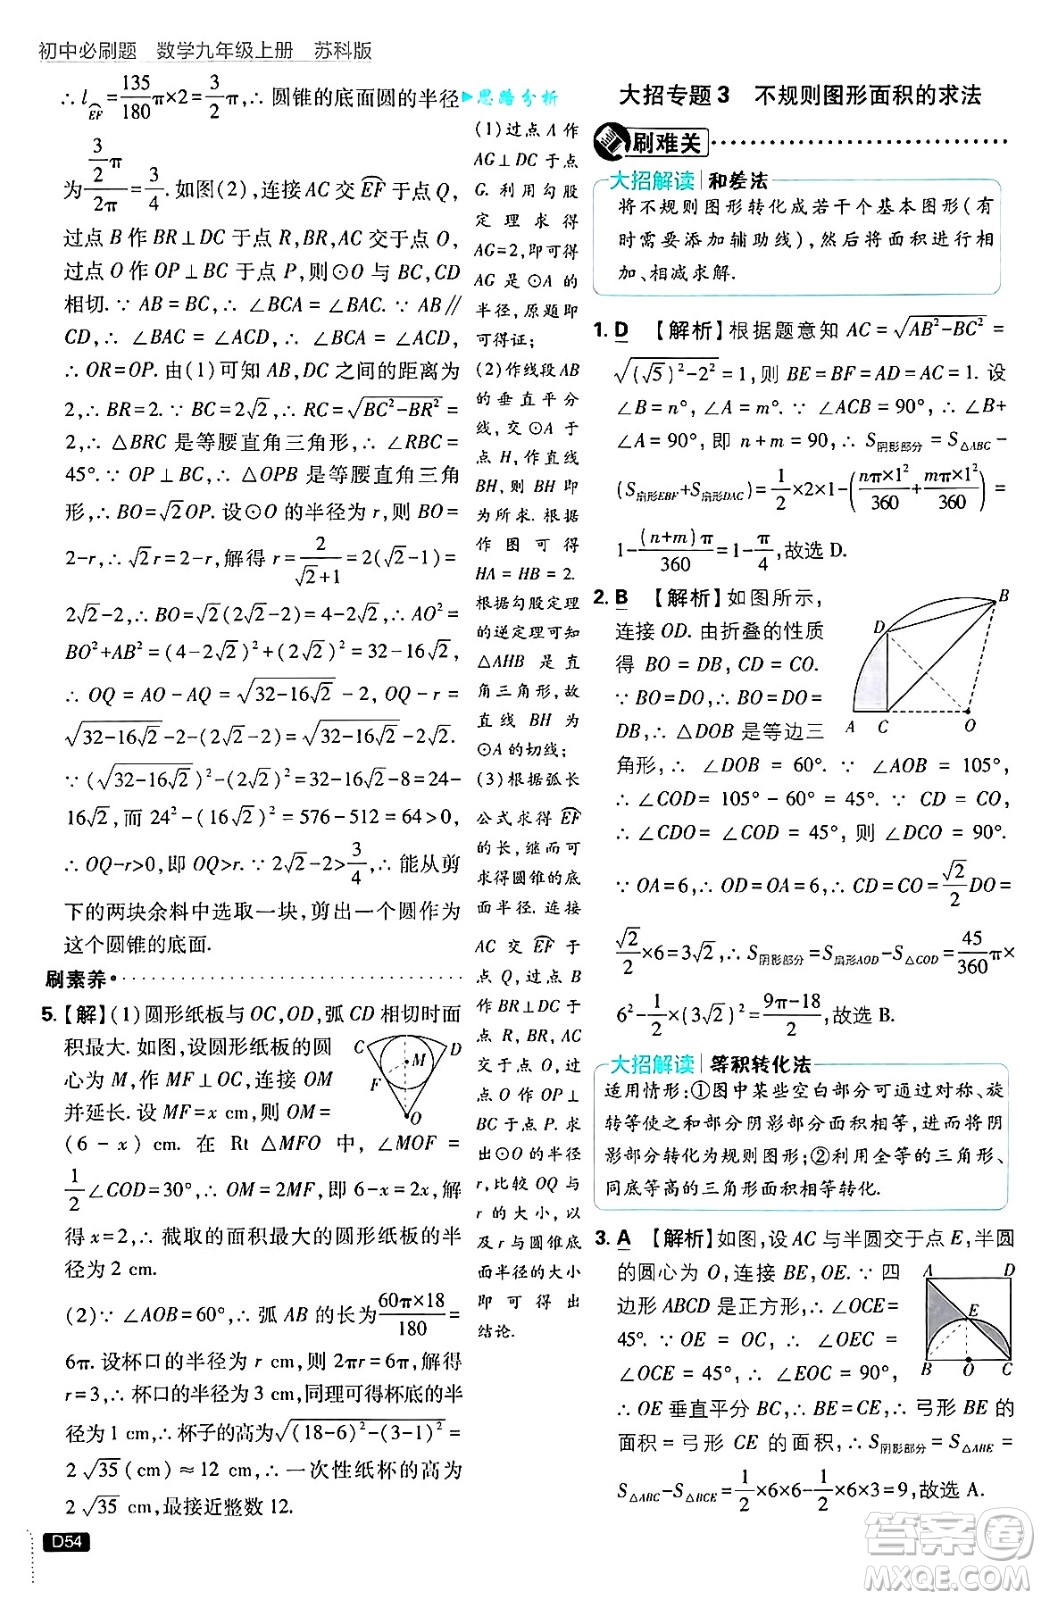 初中必刷题 数学九年级上册 苏科版
∴ l⌒EF = 135/180 π×2 = 3/2 π, ∴ 圆锥的底面圆的半径
为 (3/2 π)/(2π) = 3/4. 如图(2), 连接 AC 交 ⌒EF 于点 Q,
过点 B 作 BR⊥DC 于点 R, BR, AC 交于点 O,
过点 O 作 OP⊥BC 于点 P, 则⊙O 与 BC, CD
相切. ∵ AB=BC, ∴ ∠BCA=∠BAC. ∵ AB∥
CD, ∴ ∠BAC=∠ACD, ∴ ∠BCA=∠ACD,
∴ OR=OP. 由(1)可知 AB, DC 之间的距离为
2, ∴ BR=2. ∵ BC=2√2, ∴ RC=√(BC²-BR²)=
2, ∴ △BRC 是等腰直角三角形, ∴ ∠RBC=
45°. ∵ OP⊥BC, ∴ △OPB 是等腰直角三角
形, ∴ BO=√2OP. 设⊙O 的半径为 r, 则 BO=
2-r, ∴ √2r=2-r, 解得 r=2/(√2+1)=2(√2-1)=
2√2-2, ∴ BO=√2(2√2-2)=4-2√2, ∴ AO²=
BO²+AB²=(4-2√2)²+(2√2)²=32-16√2,
∴ OQ=AO-AQ=√(32-16√2)-2, OQ-r=
√(32-16√2)-2-(2√2-2)=√(32-16√2)-2√2.
∵ (√(32-16√2))²-(2√2)²=32-16√2-8=24-
16√2, 而 24²-(16√2)²=576-512=64>0,
∴ OQ-r>0, 即 OQ>r. ∵ 2√2-2>3/4, ∴ 能从剪
下的两块余料中选取一块, 剪出一个圆作为
这个圆锥的底面.
刷素养
5. 【解】(1)圆形纸板与 OC, OD, 弧 CD 相切时面
积最大. 如图, 设圆形纸板的圆
心为 M, 作 MF⊥OC, 连接 OM
并延长. 设 MF=x cm, 则 OM=
(6-x) cm. 在 Rt △MFO 中, ∠MOF=
1/2∠COD=30°, ∴ OM=2MF, 即 6-x=2x, 解
得 x=2, ∴ 截取的面积最大的圆形纸板的半
径为 2 cm.
(2)∵ ∠AOB=60°, ∴ 弧 AB 的长为 (60π×18)/180=
6π. 设杯口的半径为 r cm, 则 2πr=6π, 解得
r=3, ∴ 杯口的半径为 3 cm, 同理可得杯底的半
径为 1 cm, ∴ 杯子的高为 √((18-6)²-(3-1)²)=
2√35(cm)≈12 cm, ∴ 一次性纸杯的高为
2√35 cm, 最接近整数 12.
C
D
M
F
O
D54
思路分析
(1)过点 A 作
AG⊥DC 于点
G. 利用勾股
定理求得
AG=2, 即可得
出⊙A 的
半径, 原题即
可得证;
(2)作线段 AB
的垂直平分
线, 交 AB 于
点 H, 作直线
BH, 直线 BH 即
为所求. 根据
作图可得
HA=HB=2.
根据勾股定理
的逆定理可知
△AHB 是直
角三角形, 故
直线 BH 为
⊙A 的切线;
(3)根据弧长
公式求得⌒EF
的长, 继而可
求得圆锥的底
面半径. 连接
AC 交⌒EF 于
点 Q, 过点 B
作 BR⊥DC 于
点 R, BR, AC
交于点 O, 过
点 O 作 OP⊥
BC 于点 P. 求
出⊙O 的半径
r, 比较 OQ 与
r 的大小, 以
及 r 与圆锥底
面半径的大小
即可得出
结论.
大招专题3 不规则图形面积的求法
刷难关
大招解读 | 和差法
将不规则图形转化成若干个基本图形(有
时需要添加辅助线), 然后将面积进行相
加、相减求解.
1. D 【解析】根据题意知 AC=√(AB²-BC²)=
√((√5)²-2²)=1, 则 BE=BF=AD=AC=1. 设
∠B=n°, ∠A=m°. ∵ ∠ACB=90°, ∴ ∠B+
∠A=90°, 即 n+m=90, ∴ S阴影部分=S△ABC-
(S扇形EBF+S扇形DAC)=1/2×2×1-(nπ×1²/360+mπ×1²/360)=
1-(n+m)π/360=1-π/4, 故选 D.
2. B 【解析】如图所示,
连接 OD. 由折叠的性质
得 BO=DB, CD=CO.
∵ BO=DO, ∴ BO=DO=
DB, ∴ △DOB 是等边三
角形, ∴ ∠DOB=60°. ∵ ∠AOB=105°,
∴ ∠COD=105°-60°=45°. ∵ CD=CO,
∴ ∠CDO=∠COD=45°, 则 ∠DCO=90°.
∵ OA=6, ∴ DO=OA=6, ∴ CD=CO=√2/2 DO=
√2/2×6=3√2, ∴ S阴影部分=S扇形AOD-S△COD=45/360π×
6²-1/2×(3√2)²=(9π-18)/2, 故选 B.
B
D
A
C
O
大招解读 | 等积转化法
适用情形:①图中某些空白部分可通过对称、旋
转等使之和部分阴影部分面积相等, 进而将阴
影部分转化为规则图形;②利用全等的三角形、
同底等高的三角形面积相等转化.
3. A 【解析】如图, 设 AC 与半圆交于点 E, 半圆
的圆心为 O, 连接 BE, OE. ∵ 四
边形 ABCD 是正方形, ∴ ∠OCE=
45°. ∵ OE=OC, ∴ ∠OEC=
∠OCE=45°, ∴ ∠EOC=90°,
∴ OE 垂直平分 BC, ∴ BE=CE, ∴ 弓形 BE 的
面积=弓形 CE 的面积, ∴ S阴影部分=S△ABE=
S△ABC-S△BCE=1/2×6×6-1/2×6×3=9, 故选 A.
A
D
E
B
O
C
答案圈
MXQE.COM